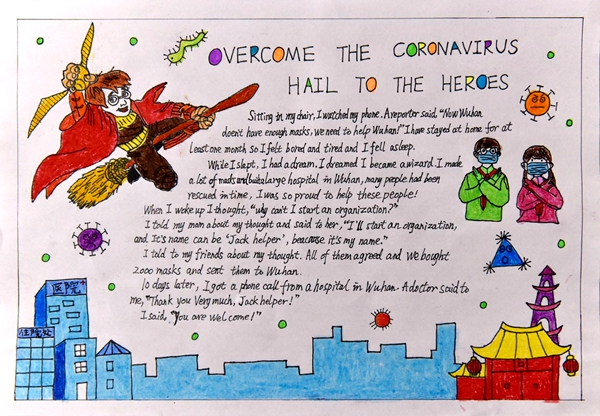 OVERCOME THE CORONAVIRUS
HAIL TO THE HEROES
Sitting in my chair, I watched my phone. A reporter said. "Now Wuhan
doesn't have enough masks, we need to help Wuhan!" I have stayed at home for at
least one month so I felt bored and tired and I fell asleep.
While I slept, I had a dream. I dreamed I became a wizard. I made
a lot of masks and built a large hospital in Wuhan, many people had been
rescued in time, I was so proud to help these people!
When I woke up I thought, "why can't I start an organization?"
I told my mom about my thought and said to her, "I'll start an organization,
and It's name can be 'Jack helper', beacause it's my name."
I told to my friends about my thought. All of them agreed and we bought
2000 masks and sent them to Wuhan.
10 days later, I got a phone call from a hospital in Wuhan. A doctor said to
me, "Thank you Very much, Jack helper!"
I said, "You are welcome!"
医院
住院处